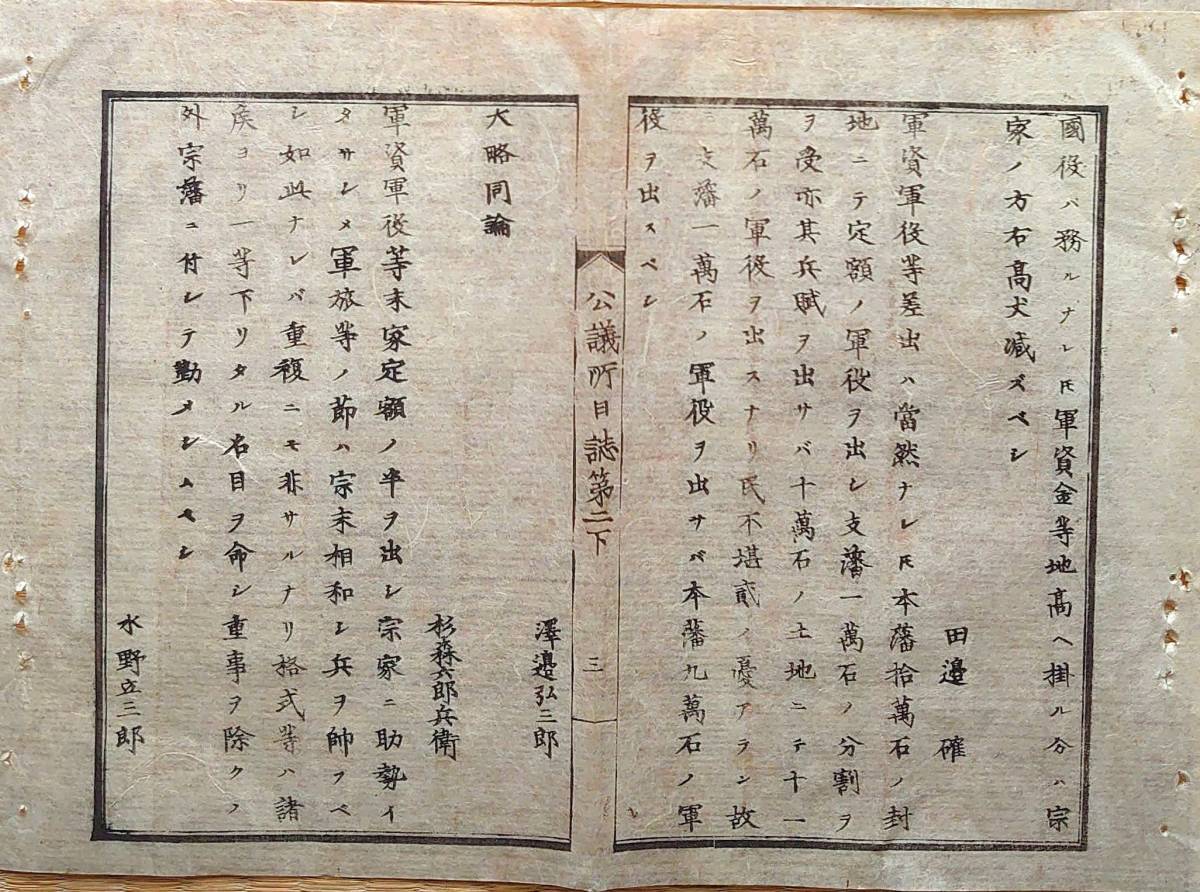 國役ハ務ルナレ𪜈軍資金等地高ヘ掛ル分ハ宗
家ノ方右高丈減ズベシ
田邉確
軍資軍役等差出ハ當然ナレ𪜈本藩拾萬石ノ封
地ニテ定額ノ軍役ヲ出シ支藩一萬石ノ分割ヲ
ヲ受亦其兵賦ヲ出サバ十萬石ノ土地ニテ十一
萬石ノ軍役ヲ出スナリ民不堪貳ノ憂アラン故
ニ支藩一萬石ノ軍役ヲ出サバ本藩九萬石ノ軍
役ヲ出スベシ
公議所日誌第二下
三
澤邉弘三郎
大略同論
杉森六郎兵衛
軍資軍役等末家定額ノ半ヲ出シ宗家ニ助勢イ
タサシメ軍旅等ノ節ハ宗末相和シ兵ヲ帥フベ
シ如此ナレバ重複ニモ非サルナリ格式等ハ諸
侯ヨリ一等下リタル名目ヲ命シ重事ヲ除クノ
外宗藩ニ付シテ勤メシムベシ
水野立三郎